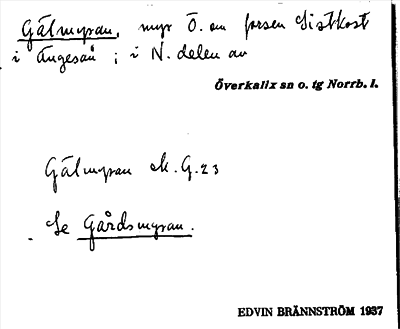 Gälmyran, myr Ö. om forsen Sistkost
i Ängesån ; i N. delen av
Överkalix sn o. tg Norrb. l.
Gälmyran ek. G.23
Se Gårdsmyran.
EDVIN BRÄNNSTRÖM 1937